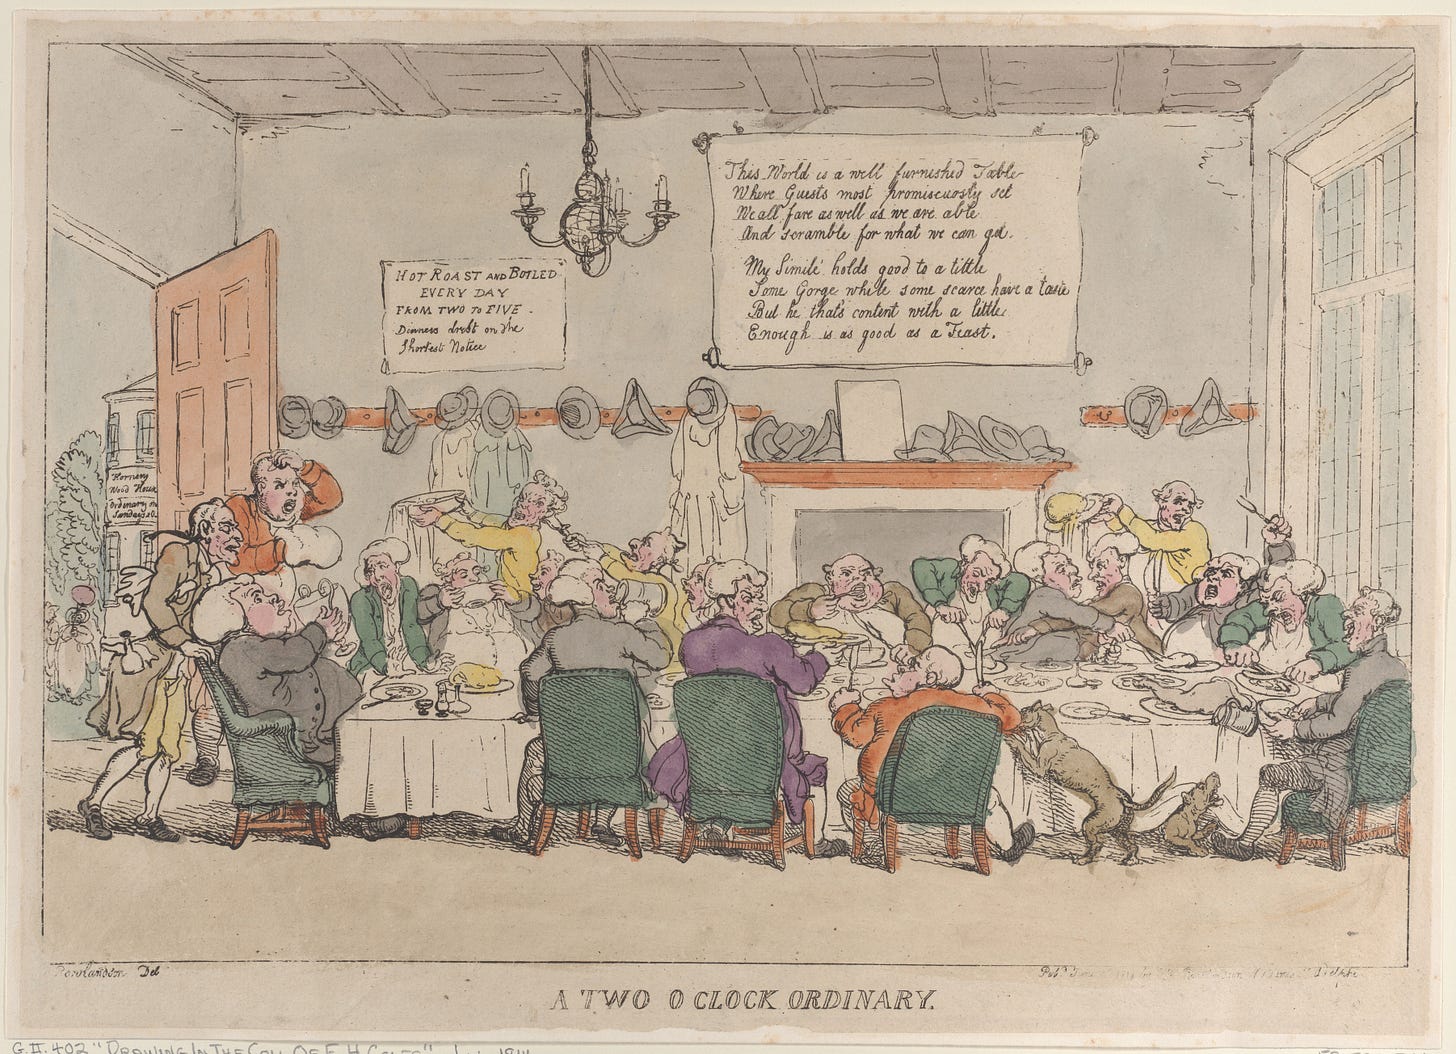 This World is a well furnished Table
Where Guests most promiscuosly set
We all fare as well as we are able
And scramble for what we can get.
My Simile holds good to a tittle
Some Gorge while some scarce have a taste
But he thats content with a little
Enough is as good as a Feast.
HOT ROAST AND BOILED
EVERY DAY
FROM TWO TO FIVE.
Dinners drest on the
Shortest Notice
Hornsey
Wood House
Ordinary on
Sundays
Rowlandson Del
A TWO O CLOCK ORDINARY.
G.II.402 "DRAWING IN THE COLL OF F. H.